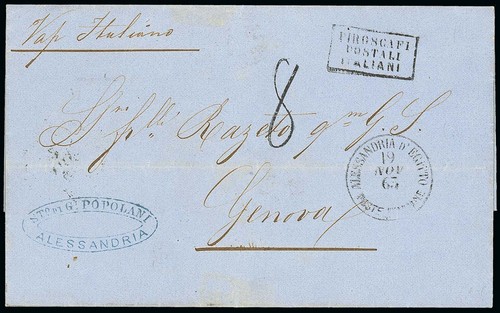 Vap Italiano
PIROSCAFI
POSTALI
ITALIANI
8
Sri
F.lli Razeto qm G. S.
Genova
ALESSANDRIA D'EGITTO
19
NOV
63
POSTE ITALIANE
NTO. DI GI. POPOLANI
ALESSANDRIA